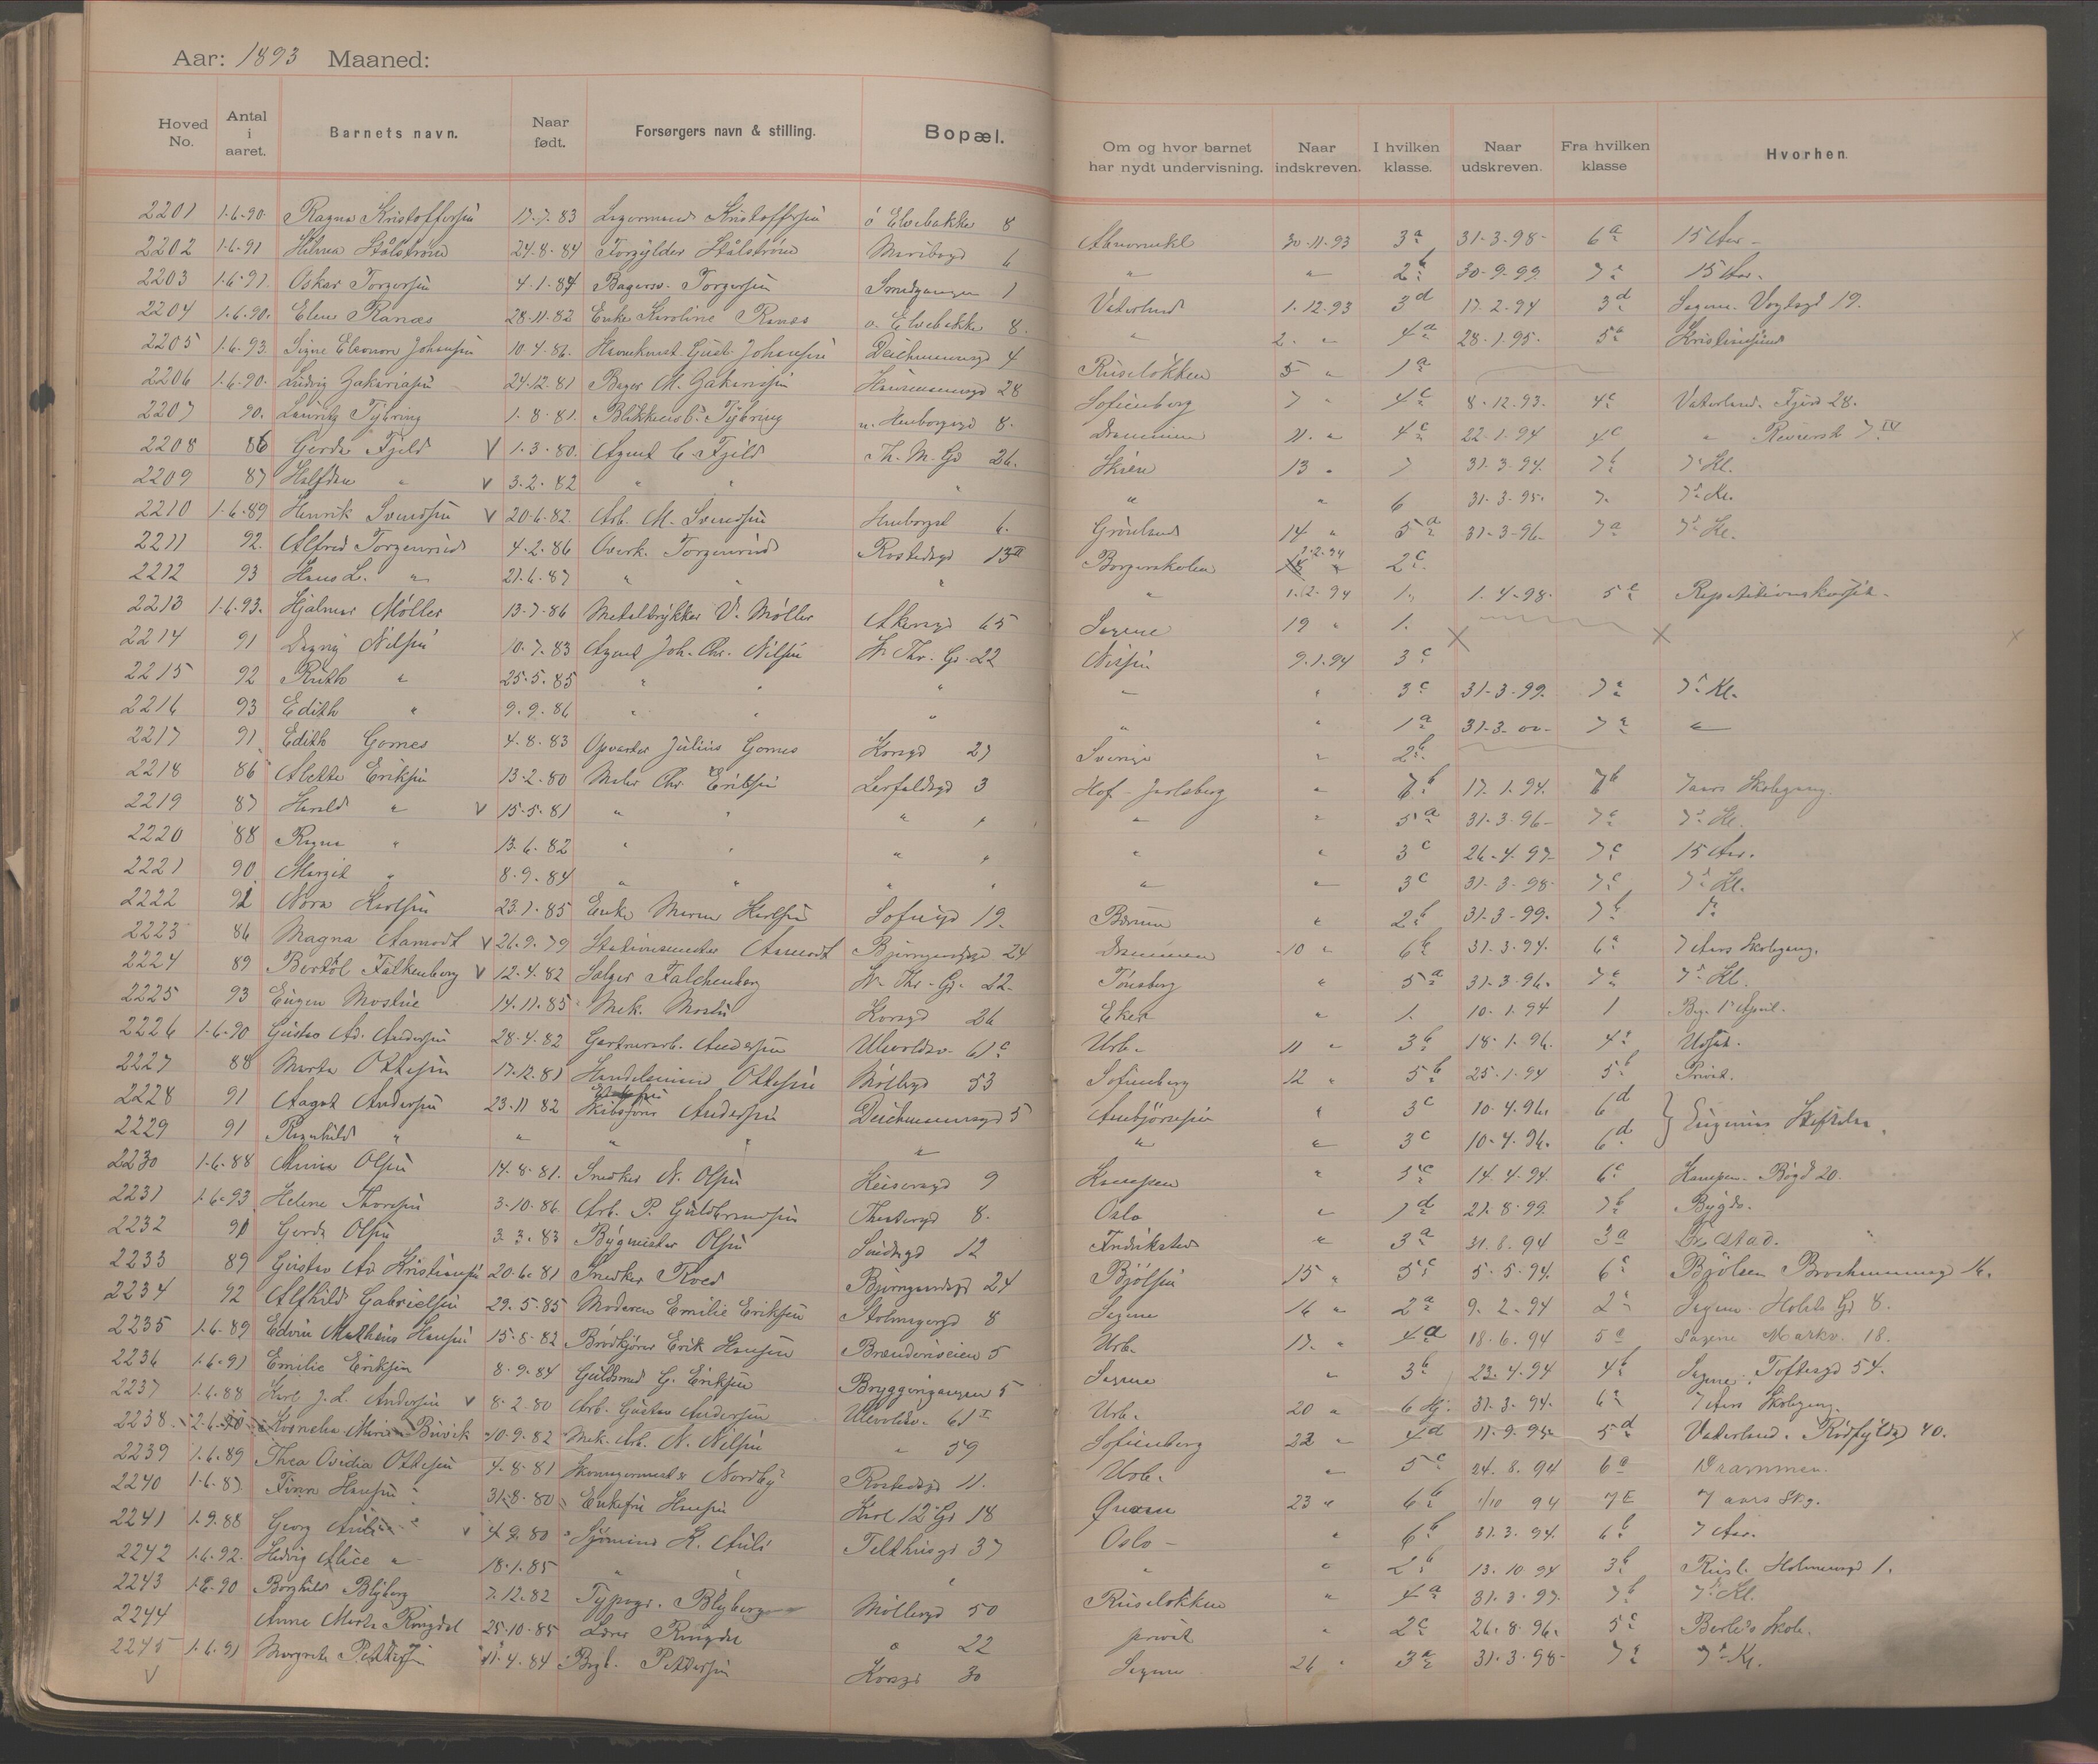 Aar: 1893 Maaned:
Hoved No. Antal i aaret. Barnets navn. Naar født. Forsørgers navn & stilling. Bopæl. Om og hvor barnet har nydt undervisning. Naar indskreven. I hvilken klasse. Naar udskreven. Fra hvilken klasse Hvorhen.
2201 1.6.90. Ragna Kristoffersen 17.7.83 Kristoffersen ö Elvebakke 8 30.11.93 3a 31.3.98 6a 15 Aar
2202 1.6.91 Hilma Stålstrøm 24.8.84 Forgylder Stålstrøm Maribogd 6 " " 2b 30.9.99. 7a 15 Aar.
2203 1.6.91. Oskar Torgersen 4.1.84 Bagersv. Torgersen Smedgangen 1 Vaterland 1.12.93 3d 17.2.94 3d Sagene. Vogtsgd 19.
2204 1.6.90. Elene Ranæs 28.11.82 Enke Karoline Ranæs ö. Elvebakke 8. " 2. " 4a 28.1.95. 5a Kristiansund
2205 1.6.93. Signe Eleonore Johansen 10.4.86. Gust. Johansen Deichmannsgd 4 Ruseløkken 5 " 1a
2206 1.6.90. Ludvig Zakariasen 24.12.81 Bager M. Zakariasen Hausmannsgd 28 Sofienberg 7 " 4c 8.12.93. 4c Vaterland. Fjerd 28.
2207 90. Lauritz Tybring 1.8.81. Tybring 8. Drammen 11. " 4c 22.1.94 4c " 7 IV
2208 86 Gerda Fjeld V 1.3.80. Agent C. Fjeld Th. M. Gd 26. Skien 13 " 7 31.3.94. 7b 7. Kl.
2209 87 Halfdan " V 3.2.82 " " " " " 6 31.3.95. 7. 7. Kl.
2210 1.6.89 Henrik Svendsen V 20.6.82. Arb. M. Svendsen 6. Grønland 14 " 5a 31.3.96. 7a 7. Kl.
2211 92. Alfred Torgenrud 4.2.86 Overk. Torgenrud Rostedsgd 13 II Borgerskolen 1.2.94 2c.
2212 93 Hans L. " 21.6.87 " " " " 1.2.94 1. 1.4.98. 5c
2213 1.6.93. Hjalmar Møller 13.7.86 Metaltrykker V. Møller Akersgd 65 Sagene 19 " 1.
2214 91 Dagny Nilsen 10.7.83 Agent Joh. Chr. Nilsen W. Thr. Gd. 22 Nissen 9.1.94 3c
2215 92 Ruth " 25.5.85 " " " " " 3c 31.3.99. 7a 7. Kl.
2216 93 Edith " 9.9.86 " " " " " 1a 31.3.00. 7a "
2217 91 Edith Gomes 4.8.83 Opvarter Julius Gomes Korsgd 27 Sverige " 2b.
2218 86 Alette Eriksen 13.2.80 Maler Chr. Eriksen Lerfaldsgd 3 Hof - Jarlsberg " 7b 17.1.94. 7b 7 aars Skolegang.
2219 87 Harald " V 15.5.81 " " " " " " 5a 31.3.96 7a 7. Kl.
2220 88 Ragna " 13.6.82 " " " " " " 3c 26.4.97 7c 15 Aar.
2221 90 Margit " 8.9.84 " " " " " " 3c 31.3.98 7c 7. Kl.
2222 91 Nora Karlsen 23.1.85 Enke Maren Karlsen Sofiegd 19. Bærum " 2b 31.3.99. 7b "
2223 86 Magna Aamodt V 26.9.79 Stationsmester Aamodt Bjerregaardsgd 24 Drammen 10 " 6b 31.3.94. 6a 7 Aars Skolegang.
2224 89 Bertol Falkenberg V 12.4.82 Sælger Falchenberg W. Thr. Gd. 22. Tönsberg " 5a 31.3.96. 7a 7. Kl.
2225 93 Eugen Mostue 14.11.85 Mek. Mostue Korsgd 26 Eker " 1. 10.1.94 1 Beg. 1 April.
2226 1.6.90 Gustav Ad. Andersen 28.4.82 Gartnerarb. Andersen Ulevoldsv. 61c Urb. 11 " 3b 18.1.96. 4a
2227 88 Marta Ottesen 17.12.81 Handelsmand Ottesen Møllergd 53 Sofienberg 12 " 5b 25.1.94 5b Privat.
2228 91 Aagot Andersen 23.11.82 Skibsfører Andersen Deichmannsgd 5 Anbjørnsen " 3c 10.4.96. 6d } Eugenias Stiftelse.
2229 91 Ragnhild " " " " " " " 3c 10.4.96. 6d
2230 1.6.88 Anna Olsen 14.8.81. Snedker N. Olsen Keisersgd 9 Kampen " 5c 14.4.94. 6c Kampen. Bøgd 20.
2231 1.6.93 Helene Thoresen 3.10.86 Arb. P. Guldbrandsen Theatergd 8. Oslo " 1d 21.8.99. 7b Bygdø.
2232 90 Gerda Olsen 3.3.83 Bygmester Olsen 12 Fredrikstad " 3a 31.8.94 3a Fr. stad.
2233 89 Gustav Ad Kristiansen 20.6.81 Snedker Roed Bjerregaardsgd 24 Bjølsen 15 " 5c 5.5.94. 6c Bjølsen 16.
2234 92 Alfhild Gabrielsen 29.5.85 Moderen Emilie Eriksen Stolmagergd 8 Sagene 16 " 2a 9.2.94 2a Sagene. Holsts Gd 8.
2235 1.6.89 Edvin Mathias Hansen 15.8.82 Brödkjører Erik Hansen Brænderiveien 5 Urb. 17. " 4a 18.6.94 5a Sagene Markv. 18.
2236 1.6.91 Emilie Eriksen 8.9.84 Guldsmed G. Eriksen Bryggerigangen 5 Sagene " 3b 23.4.94 4b Sagene. Toftesgd 54.
2237 1.6.88 Karl J. L. Andersen V 8.2.80 Arb. Gustav Andersen Ulevoldsv. 61 I Urb. 20 " 6 31.3.94. 6a 7 Aars Skolegang.
2238. 2.6.90 Kornelia Marie Buvik 10.9.82 Mek. Arb. N. Nilsen " 59 Sofienberg 22 " 4d 11.9.94 5d Vaterland. Rødfyldgd 40.
2239 1.6.89 Thea Ovidia Ottesen 4.8.81 Skomagermester Nordby Rostedsgd 11. Urb. " 5c 24.8.94 6a Drammen.
2240 1.6.87 Finn Hansen 31.8.80 Enkefru Hansen Karl 12 Gd 18 23 " 6b 1/10 94 7E 7 aars Skg.
2241 1.9.88 Georg Auli V 4.2.80 Sjømand K. Auli Telthusgd 37 Oslo " 6b 31.3.94. 6b 7 Aar.
2242 1.6.92. Hedvig Alice " 18.1.85 " " " " " 2b 13.10.94 3b Rusl. Holmensgd 1.
2243 1.6.90 Borghild Blyberg 7.12.82 Typogr. Blyberg Møllergd 50 Ruseløkken " 4a 31.3.97. 7b 7. Kl.
2244 Anne Marta Ringdal 25.10.85 Lærer Ringdal " 22 privat " 2c 26.8.96. 5c Berles Skole.
2245 1.6.91 Margrete Pettersen 11.4.84 Pettersen Korsgd 30 Sagene 26 " 3a 31.3.98 7a 7. Kl.
V